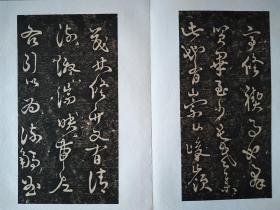 亭修禊事也羣
賢畢至少長咸集
此地有崇山峻嶺
茂林修竹又有清
流激湍映帶左
右引以為流觴曲